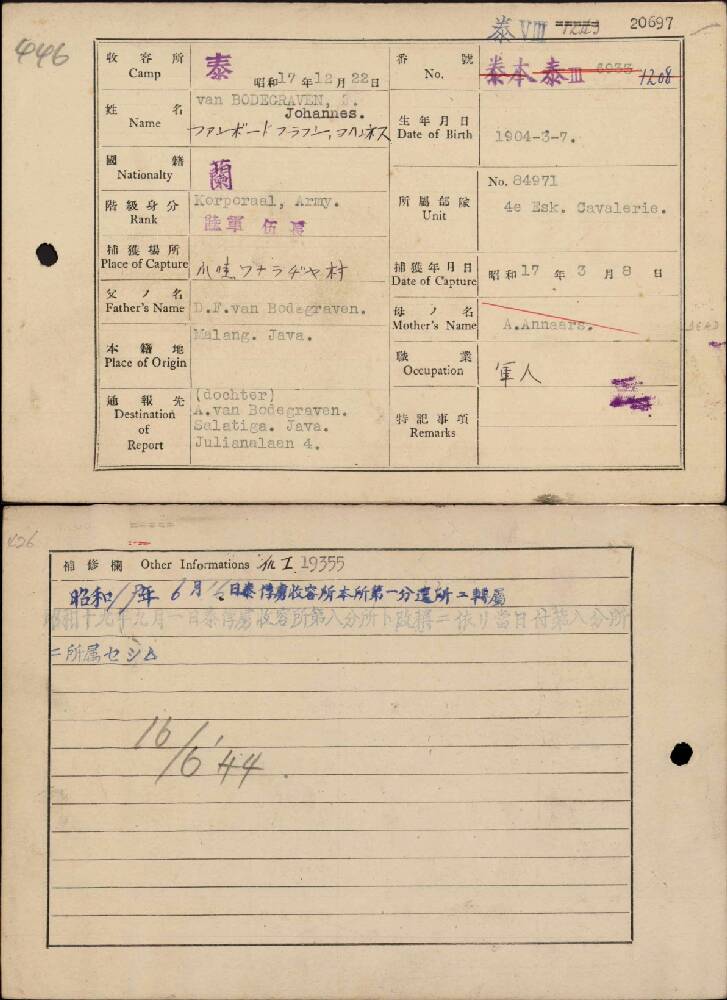 446
泰 VIII 1203 20697
收容所 Camp 泰 昭和17年12月22日
番號 No. 泰本 泰III 6933 1208
姓名 Name van BODEGRAVEN, J.
Johannes.
ファンボードフラフエン,ヨハンネス
生年月日 Date of Birth 1904-3-7.
國籍 Nationalty 蘭
階級身分 Rank Korporaal, Army.
陸軍 伍長
所屬部隊 Unit No. 84971
4e Esk. Cavalerie.
捕獲場所 Place of Capture 爪哇ワナラヂヤ村
捕獲年月日 Date of Capture 昭和17年3月8日
父ノ名 Father's Name D.F.van Bodegraven.
母ノ名 Mother's Name A.Annaars.
DEAD
本籍地 Place of Origin Malang. Java.
職業 Occupation 軍人
通報先 Destination of Report (dochter)
A.van Bodegraven.
Salatiga. Java.
Julianalaan 4.
特記事項 Remarks
補修欄 Other Informations 爪I 19355
昭和19年6月16日泰俘虜收容所本所第一分遣所ニ轉屬
昭和十九年九月一日泰俘虜收容所第八分所ト改稱ニ依リ當日付第八分所
ニ所属セシム
16/6'44.